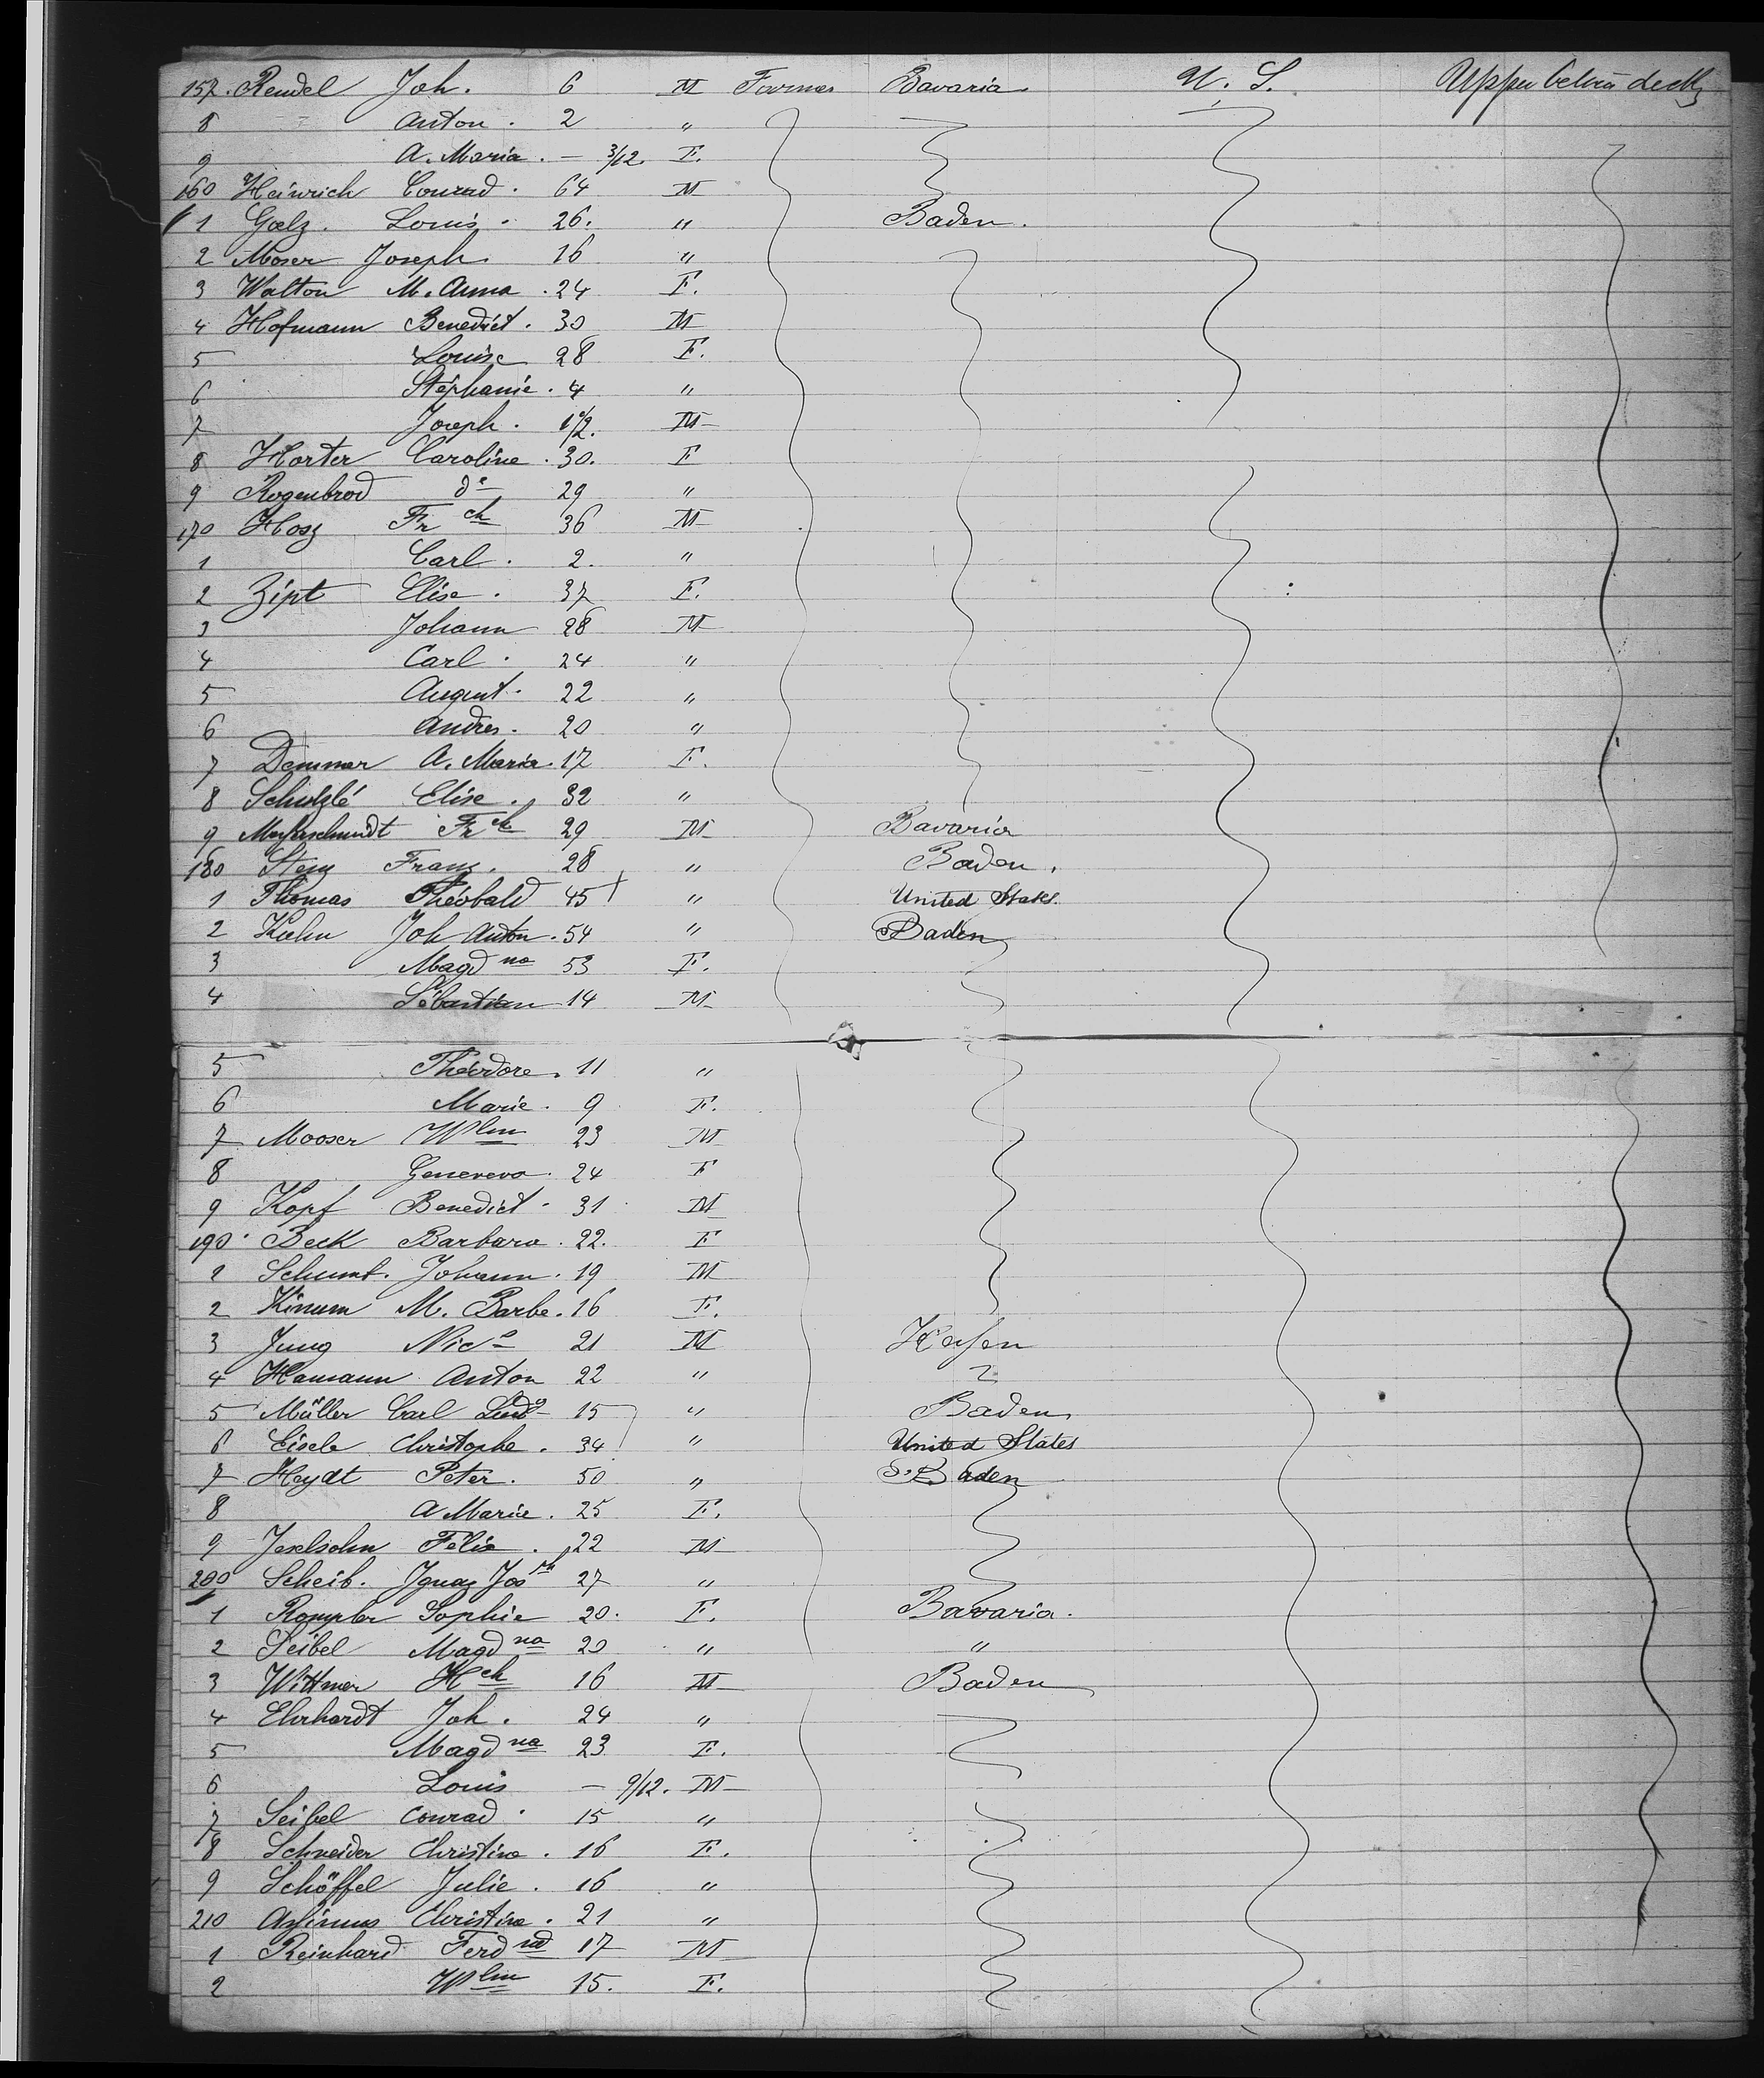 157. Rendel Joh. 6 M Farmer Bavaria U. S. Upper betwn decks
8 Anton. 2 "
9 A. Maria. - 3/12. F.
160 Heinrich Conrad. 64 M
1 Gœlz. Louis. 26. " Baden.
2 Moser Joseph. 16 "
3 Walton M. Anna. 24 F.
4 Hofmann Benedict. 30 M
5 Louise 28 F.
6 Stéphanie. 4 "
7 Joseph. 1 1/2. M
8 Harter Caroline. 30. F
9 Rogenbrod do 29 "
170 Hosz Frch 36 M
1 Carl. 2. "
2 Zipt Elise. 37 F.
3 Johann 28 M
4 Carl. 24 "
5 August. 22 "
6 Andres. 20 "
7 Demmer A. Maria. 17 F.
8 Schulzlé Elise. 32 "
9 Frch 29 M Bavaria
180 Stenz Franz. 28 " Baden.
1 Thomas Théobald 45 " United States.
2 Kuhn Joh Anton. 54 " Baden
3 Magdna 53 F.
4 Sébastian 14 M
5 Théodore. 11 "
6 Marie. 9 F.
7 Mooser Wlm 23 M
8 Geneveva. 24 F
9 Kopf Benedict. 31 M
190. Beck Barbara. 22. F
1 Johann. 19 M
2 Kinum M. Barbe. 16 F.
3 Jung Nics 21 M Hessen
4 Hamann Anton 22 "
5 Müller Carl Ludg 15 " Baden
6 Eisele Christophe. 34 " United States
7 Heydt Peter. 50 " Baden
8 A Marie. 25 F.
9 Jexelsohn Félix. 22 M
200 Scheib. Ignaz Josph 27 "
1 Rompler Sophie 20. F. Bavaria.
2 Seibel Magdna 20 " "
3 Wittmer Hch 16 M Baden
4 Ehrhardt Joh. 24 "
5 Magdna 23 F.
6 Louis - 9/12. M
7 Seibel Conrad. 15 "
8 Schneider Christina. 16 F.
9 Schöffel Julie. 16 "
210 Asimus Christina. 21 "
1 Reinhard Ferdnd 17 M
2 Wlm 15. F.